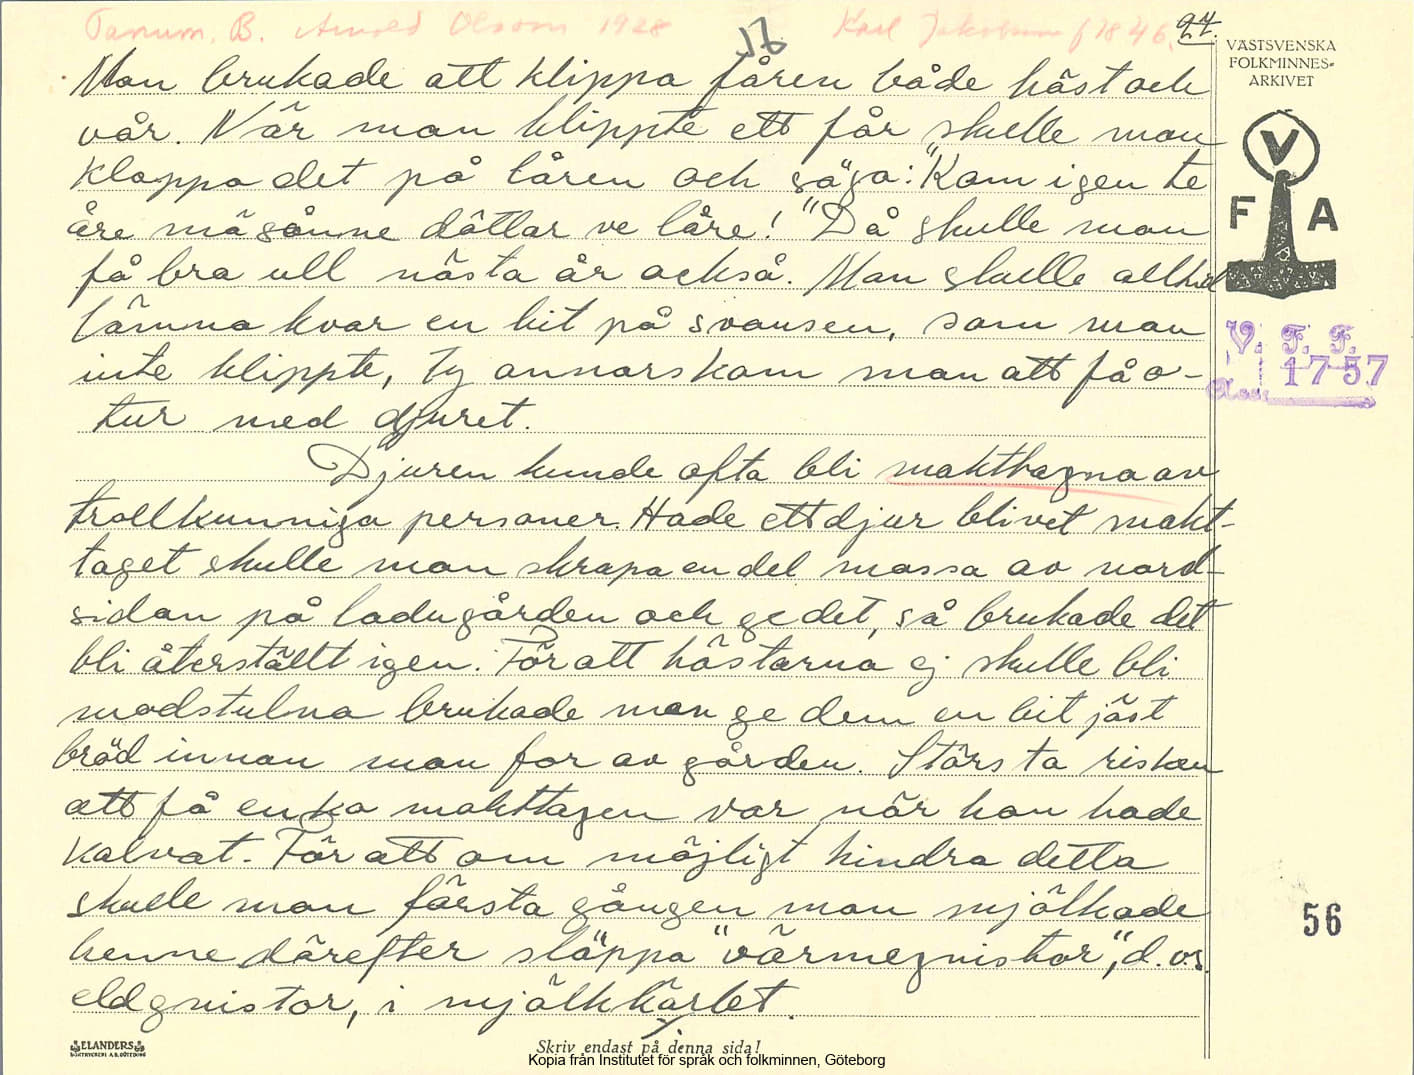 Tanum. B. Arnold Olsson 1928 Karl Jakobsson f 1846.
16
27.
VÄSTSVENSKA
FOLKMINNES-
ARKIVET
V
F A
V. F. F.
1757
Man brukade att klippa fåren både höst och
vår. När man klippte ett får skulle man
klappa det på låren och säga: "Kom igen te
åre mä sånne dôttlar ve låre!" Då skulle man
få bra ull nästa år också. Man skulle alltid
lämna kvar en bit på svansen, som man
inte klippte, ty annars kom man att få o-
tur med djuret.
Djuren kunde ofta bli makttagna av
trollkunniga personer. Hade ett djur blivet makt-
taget skulle man skrapa en del mossa av nord-
sidan på ladugården och ge det, så brukade det
bli återställt igen. För att hästarna ej skulle bli
modstulna brukade man ge dem en bit jäst
bröd innan man for av gården. Största risken
att få en ko makttagen var när hon hade
kalvat. För att om möjligt hindra detta
skulle man första gången man mjölkade
henne därefter släppa "värmegnistor", d.v.s.
eldgnistor, i mjölkkärlet.
56
ELANDERS
BOKTRYCKERI A.B. GÖTEBORG
Skriv endast på denna sida!
Kopia från Institutet för språk och folkminnen, Göteborg